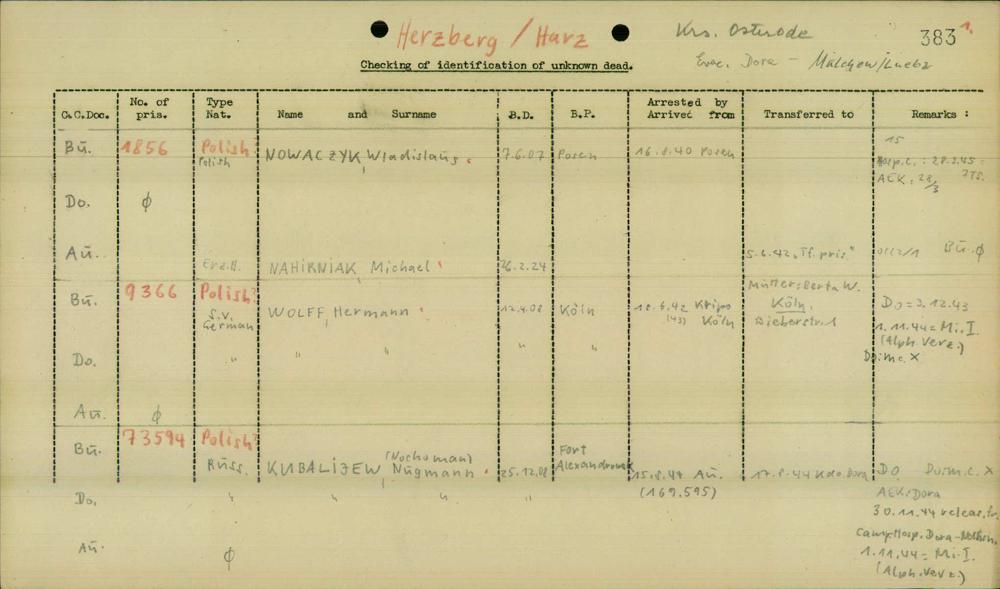 Herzberg / Harz Krs. Osterode 383 1.
Checking of identification of unknown dead. Evac. Dora - Malchow/Luebz
C.C.Doc. No. of pris. Type Nat. Name and Surname B.D. B.P. Arrested by Arrived from Transferred to Remarks :
Bū. 1856 Polish? Polish NOWACZYK Wladislaus 7.6.07 Posen 16.8.40 Posen 15
Hosp.c.: 28.3.45
AEK: 28/3
Do. ø
Aū. NAHIRNIAK Michael 26.2.24 5.6.42 „Tf. pris" 0112/1 Bū. ø
Bū. 9366 Polish? S.V. German WOLFF, Hermann 12.4.08 Köln 18.6.42 Kripo (43) Köln Mutter: Berta W. Köln, Bieberstr. 1 Do = 3.12.43
1.11.44 = Mi. I.
(Alph. Verz.)
Do. " " " " " Do: m.c. X
Aū. ø
Bū. 73594 Polish? Russ. KUBALIJEW (Nochoman) Nugmann 25.12.08 Fort 15.8.44 Aū. (169.595) 17.8.44 Kdo. Dora DO D: m.c. X
Do. " " " " AEK: Dora
30.11.44 releas. fr.
Camp-Hosp. Dora-Nordhn.
Aū. ø 1.11.44 = Mi. I.
(Alph. Verz.)